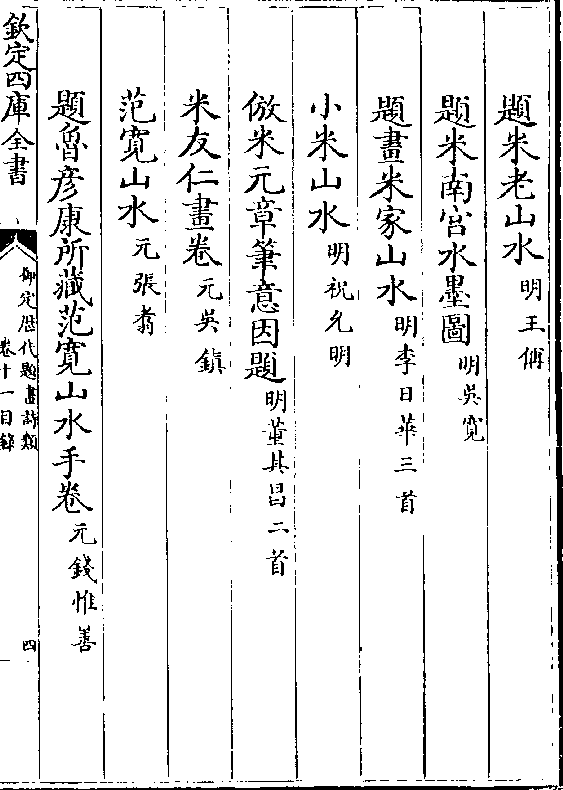 題米老山水明王偁
題米南宮水墨圖明吳寛
題畫米家山水明李日華三首
小米山水明祝允明
倣米元章筆意因題明董其昌二首
米友仁畫卷元吳鎮
范寛山水元張翥
題魯彦康所藏范寛山水手卷元錢惟善
欽定四庫全書
御定歴代題畫詩類
卷十一目録
四